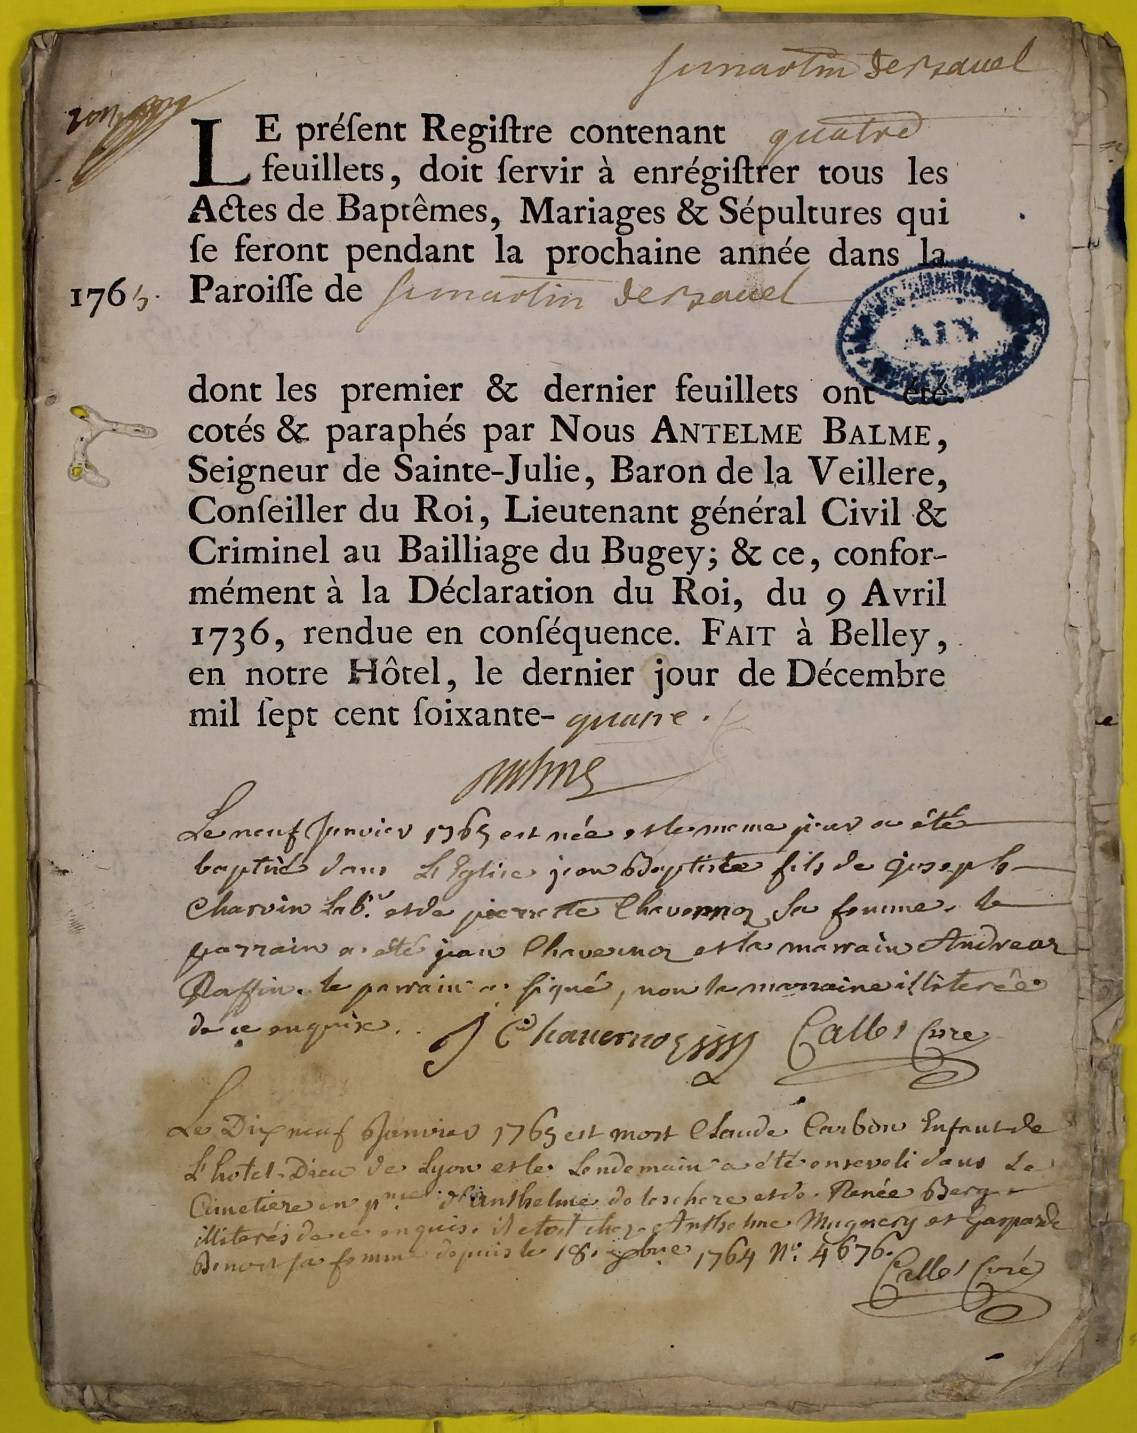 st martin de Bavel
LE préſent Regiſtre contenant quatre
feuillets, doit ſervir à enrégiſtrer tous les
Actes de Baptêmes, Mariages & Sépultures qui
ſe feront pendant la prochaine année dans la
1765. Paroiſſe de st martin de Bavel
AIN
dont les premier & dernier feuillets ont été
cotés & paraphés par Nous ANTELME BALME,
Seigneur de Sainte-Julie, Baron de la Veillere,
Conſeiller du Roi, Lieutenant général Civil &
Criminel au Bailliage du Bugey; & ce, confor-
mément à la Déclaration du Roi, du 9 Avril
1736, rendue en conſéquence. FAIT à Belley,
en notre Hôtel, le dernier jour de Décembre
mil ſept cent ſoixante-quatre.
Balme
Le neuf Janvier 1765 est née et le meme jour a été
baptisé dans L'Eglise jean Baptiste fils de joseph
Charvin Labr. et de pierrette Chavernoz sa femme. le
parrain a été jean Chavernoz et la marrain Andrea
Raffin. le parrain a signé, non la marraine illiterée
de ce enquise. J Chavernoz Callet Curé
Le Dix neuf Janvier 1765 est mort Claude Carbon Enfant de
L'hotel-Dieu de Lyon et le Lendemain a été enseveli dans Le
Cimetiere en pnce d'Anthelme de lechere et de Renée Berg
illiterés de ce enquis. il etoit chez Anthelme Mugnery et Gasparde
Benoit sa femme depuis le 18. xbre 1764 No. 4676.
Callet Curé